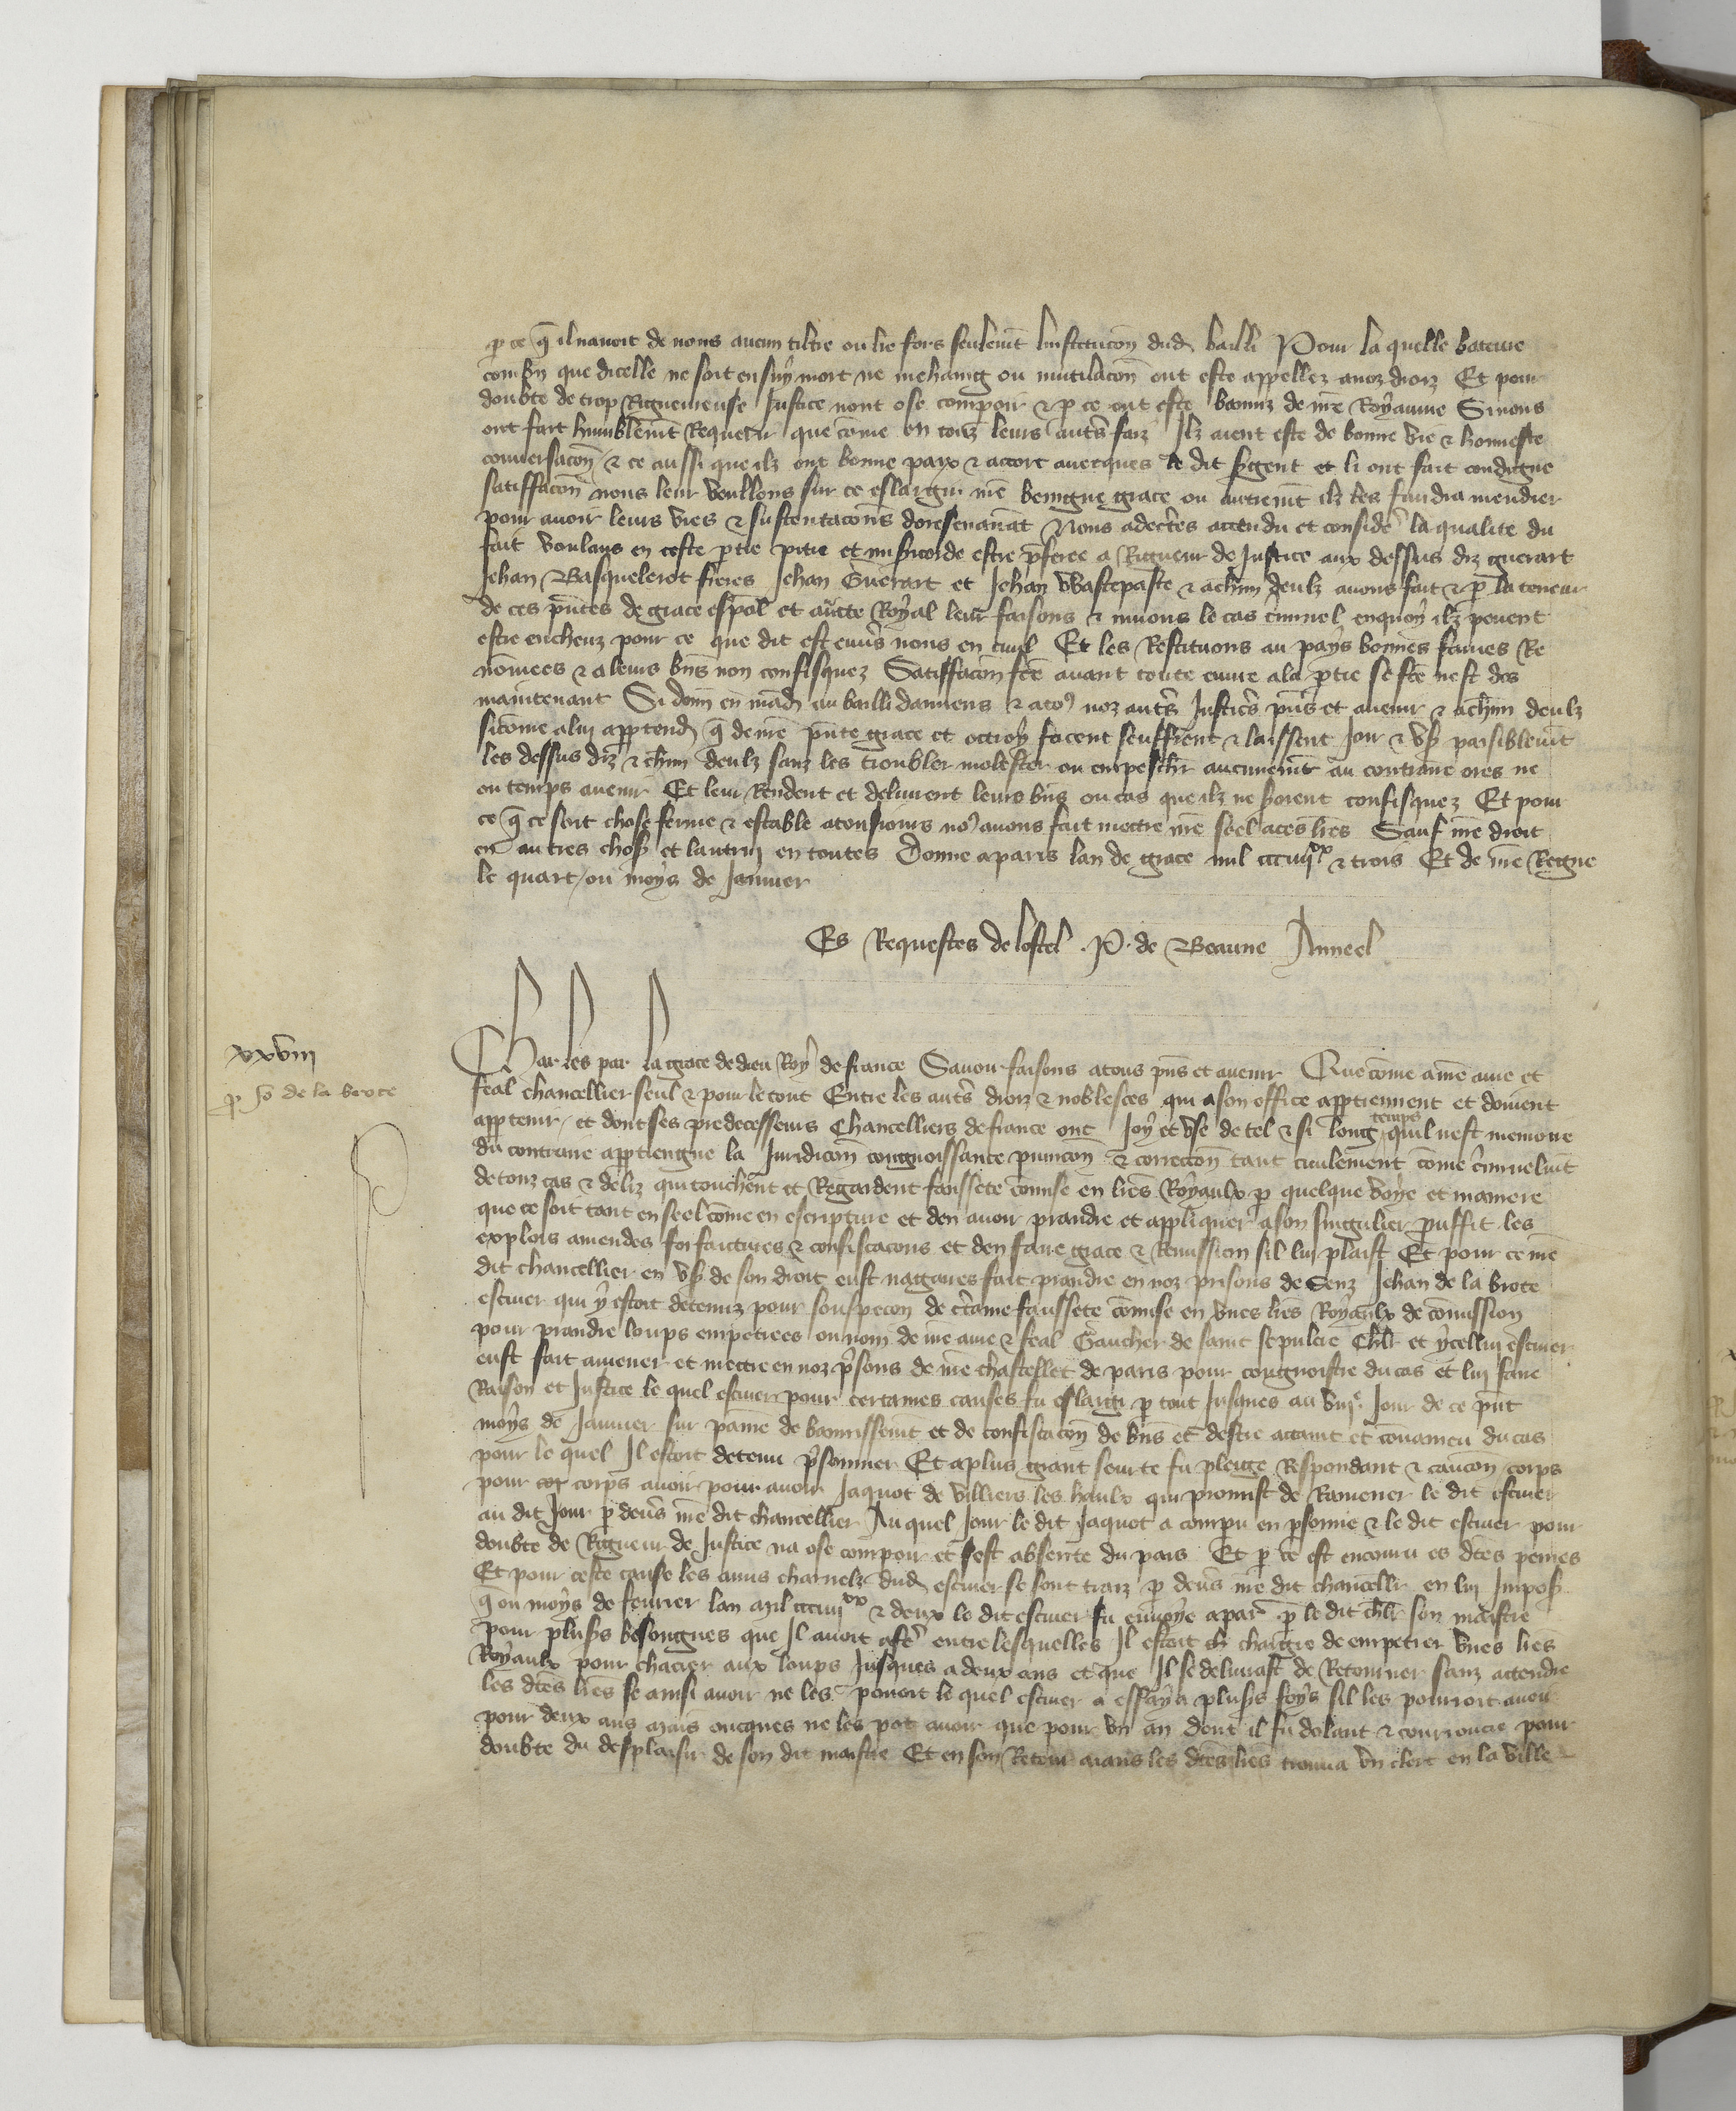 p ce q̄ il navoit de nous aucun tiltre ou lie fors seulemt̄ linstitucōn dud. bailli Pour la quelle bateure
com bn̄ que dicelle ne soit ensuỹ mort ne mehaing ou mutilacōn ont este appellez a noz droiz Et pour
doubte de trop Rigueureuse Justice nont ose comparoir & p ce ont este banniz de nr̄e Royaume Si nous
ont fait humblemt̄ Requerir que cōme en touz leurs autr̄s faiz Ilz aient este de bonne vie & honneste
conversacōn & ce aussi que ilz ont bonne paix & accort avecques le dit sergent et li ont fait condigne
satiffacōn nous leur veullons sur ce eslargir nr̄e benigne grace ou autremt̄ ilz les faudra mendier
pour avoir leurs vies & sustentacōns doresenavāt Nous adecrtes attendu et considere la qualite du
fait voulans en ceste ptie pitie et misicorde estre pferee a Rigueur de Justice aux dessus diz guerart
Jehan Basquelerot freres Jehan Guerart et Jehan Wastepaste & a chn̄ deulz avons fait & p la teneur
de ces pn̄tes de grace esp̄al et auct̄te Royal leur faisons & muons le cas crimnel enquoy ilz pevent
estre encheuz pour ce que dit est envs̄ nous en civil Et les Restituons au pays bonnes fames Re
nōmees & a leurs bn̄s non confisquez Satiffacōn fc̄e avant toute euvre a la ptie se fc̄e nest des
maintenant Si donn̄ en mād. au bailli damiens & a to9 noz autr̄s Justicrs̄ pn̄s et avenir & a chn̄ deulz
sicōme a lui apptend. q̄ de nr̄e pn̄te grace et ottroy facent seuffrent & laissent Joir & usr paisiblemt̄
les dessus diz & chn̄ deulz sanz les troubler molester ou empeschr aucunemt̄ au contraire ores ne
ou temps avenir Et leur Rendent et delivrent leurs bn̄s ou cas que ilz ne soient confisquez Et pour
ce q̄ ce soit chose ferme & estable a tousjours no9 avons fait mectre nr̄e seel a ces lr̄es Sauf nr̄e droit
en autres chos et lautruy en toutes Donne a paris lan de grace mil ccciiijxx & trois Et de nr̄e Regne
le quart / ou moys de Janvier
Es Requestes de lostel . P. de Beaune Anneel
xxviii
p Jo de la broce
Charles par la grace de dieu Roy de france Savoir faisons a tous pn̄s et avenir Que cōme a nr̄e ame et
feal chancellier seul & pour le tout Entre les autr̄s droiz & noblesces qui a son office apptiennent et doivent
apptenir / et dont ses predecesseurs Chancelliers de france ont Joy et use de tel & si long temps quil nest memoire
du contraire apptiengne la Juridicōn congnoissance punicōn & correccōn tant civilement cōme crimnelmt̄
de touz cas & deliz qui touchent et Regardent faussete cōmise en lr̄es Royaulx p quelque voye et maniere
que ce soit tant en seel cōme en escripture et den avoir prandre et appliquer a son singulier puffit les
explois amendes forfaictures & confiscacōns et den faire grace & Remission sil lui plaist Et pour ce nr̄e
dit chancellier en usr de son droit eust nagaires fait prandre en noz prisons de Senz Jehan de la broce
escuier qui y estoit detenuz pour souspecon de crtaine faussete cōmise en unes lr̄es Royaulx de cōmission
pour prandre loups empetrees ou nom de nr̄e ame & feal Gaucher de saint sepulcre chlr et ycellui escuier
eust fait amener et mectre en noz prisons de nr̄e chastellet de paris pour congnoistre du cas et lui faire
Raison et Justice le quel escuier pour certaines causes fu eslargi p tout Jusques au viije Jour de ce pn̄t
moys de Janvier sur paine de bannissemt̄ et de confiscacōn de bn̄s et destre attaint et cōvaincu du cas
pour le quel Il estoit detenu prsonnier Et a plus grant seurte fu pleige Respondant & caucion corps
pour cor corps avoir pour avoir Jaquot de villiers les haulx qui promist de Ramener le dit escuier
au dit Jour p devs̄ nr̄e dit chancellier Au quel Jour le dit Jaquot a compu en psonne & le dit escuier pour
doubte de Rigueur de Justice na ose compoir et sest absente du pais Et p ce est encouru es dc̄tes peines
Et pour ceste cause les amis charnelz dud. escuier se sont traiz p devs̄ nr̄e dit chancellir en lui Expos
q̄ ou moys de fevrier lan mil ccciiijxx & deux le dit escuier fu envoye a par p le dit chlr son maistre
pour plusrs besongnes que Il avoit a fere entre lesquelles Il estoit ch chargie de empetrer unes lr̄es
Royaulx pour chacier aux loups Jusques a deux ans et que Il se delivrast de Retourner sanz attendre
les dc̄tes lr̄es se ainsi avoir ne les povoit le quel escuier a essaye a plusrs foys sil les pourroit avoir
pour deux ans mais oncques ne les pot avoir que pour un an dont il fu dolant & courroucie pour
doubte du desplaisir de son dit maistre Et en son Retour atans les dc̄tes lr̄es trouva un clerc en la ville